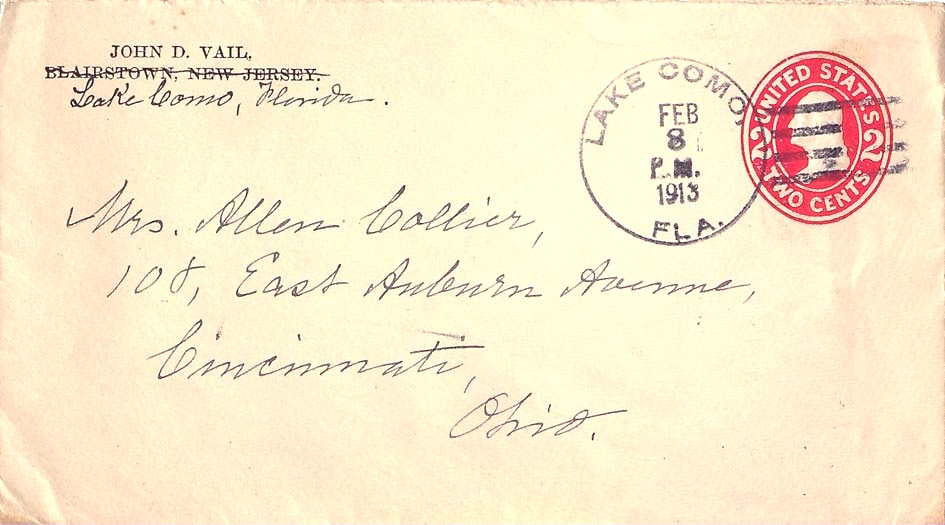 JOHN D. VAIL,
BLAIRSTOWN, NEW JERSEY.
Lake Como, Florida.
LAKE COMO,
FEB
8
P.M.
1913
FLA.
UNITED STATES
2 2
TWO CENTS
Mrs. Allen Collier,
108, East Auburn Avenue,
Cincinnati,
Ohio.